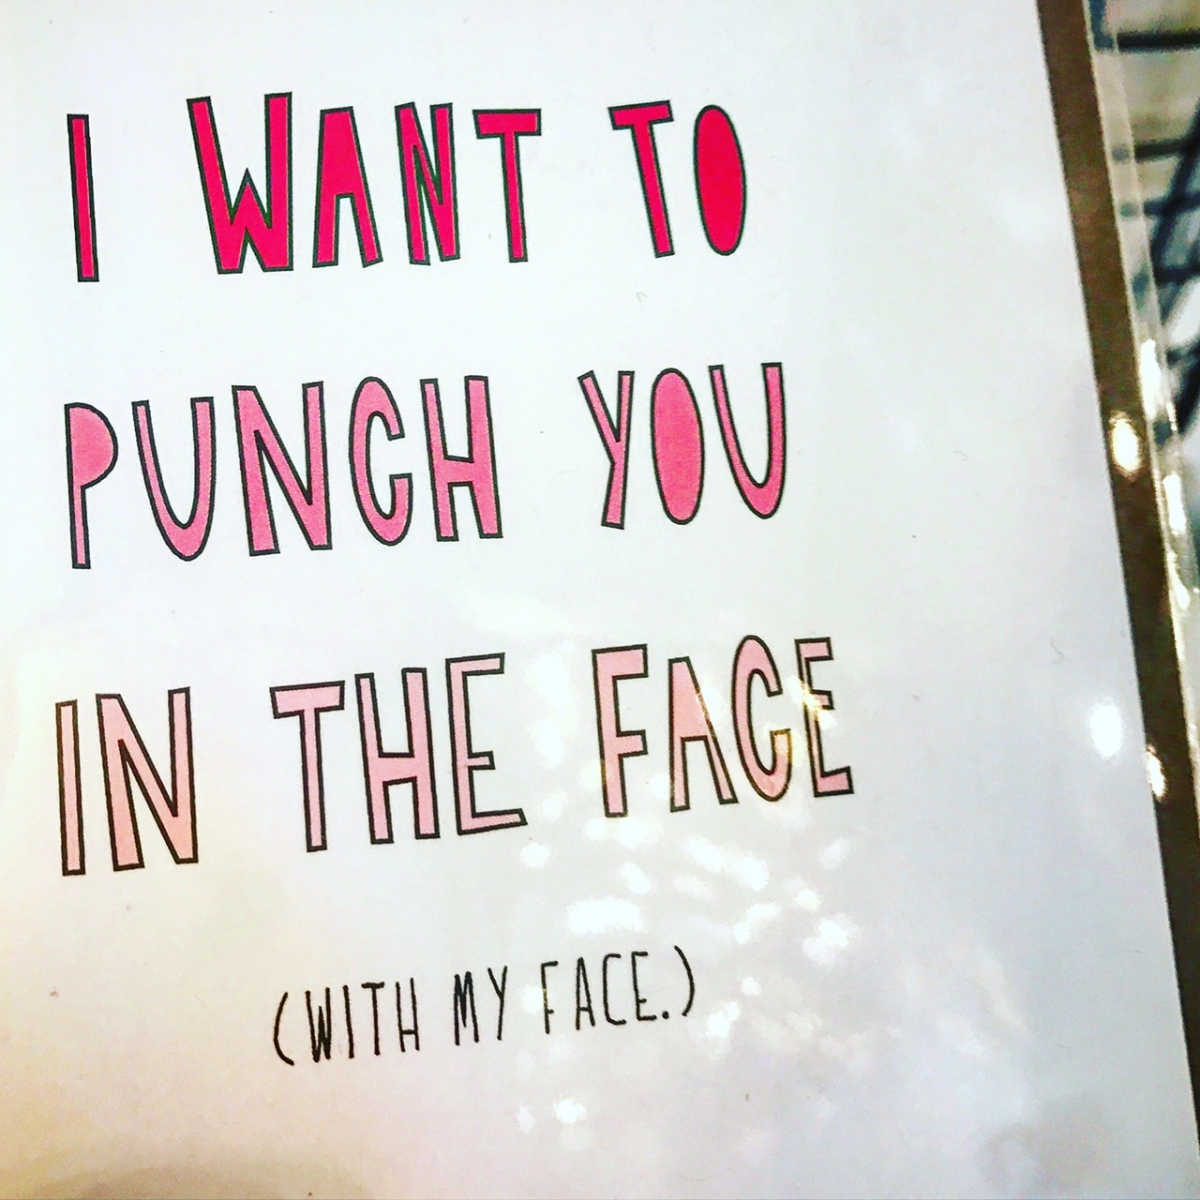 I WANT TO
PUNCH YOU
IN THE FACE
(WITH MY FACE.)